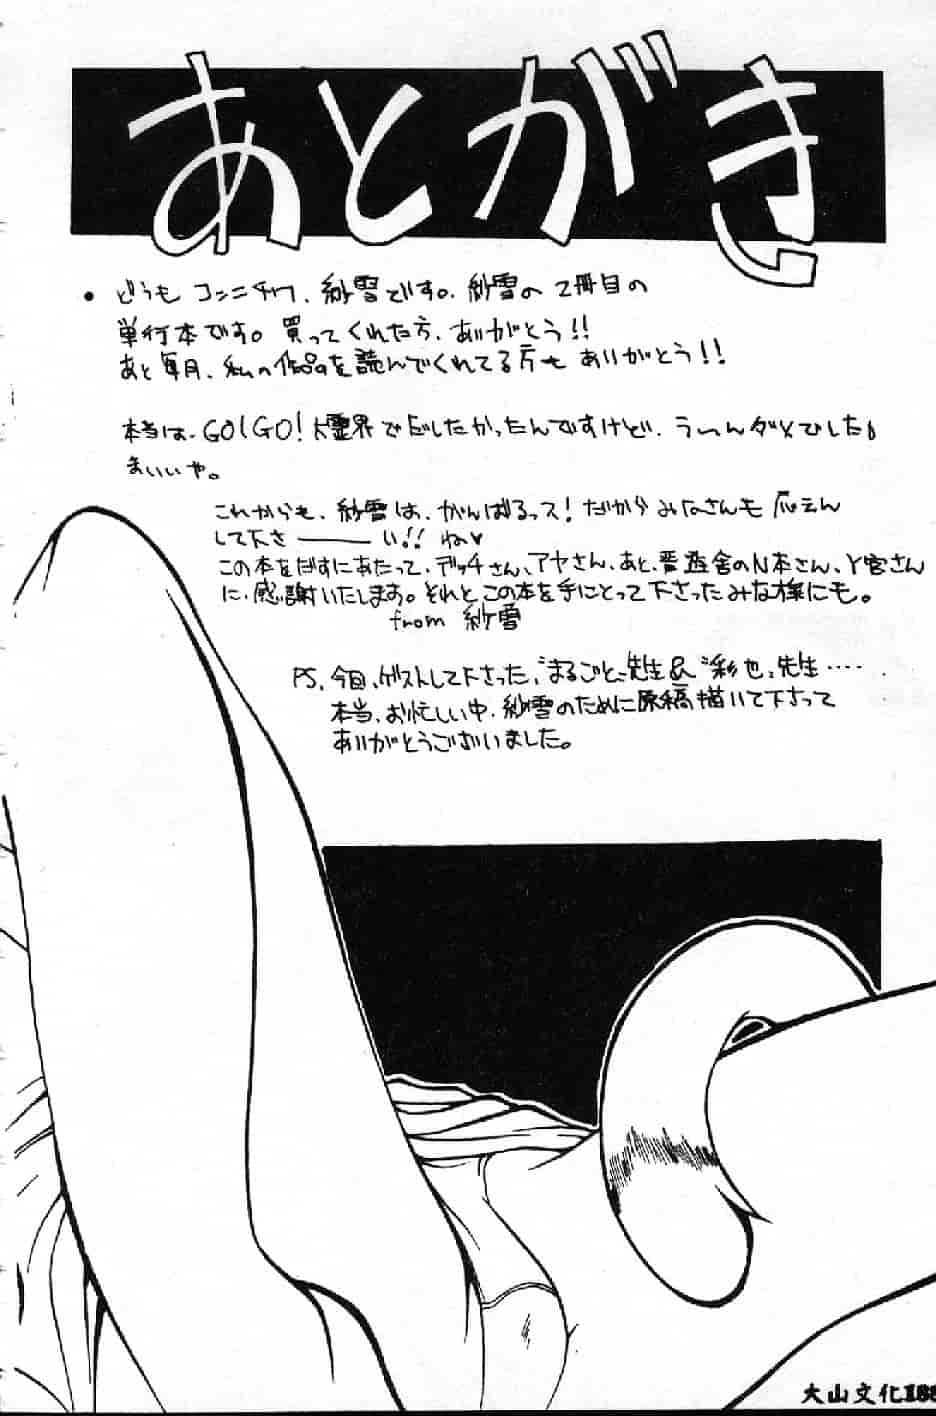 あとがき
・どうもコンニチワ、紗雪です。紗雪の2冊目の
単行本です。買ってくれた方、ありがとう!!
あと毎月、私の作品を読んでくれてる方もありがとう!!
本当は、GO!GO!大霊界でだしたかったんですけど、うーんダメでした。
まいいや。
これからも、紗雪は、がんばるっス!だからみなさんも応えん
して下さ———い!!ね♥
この本をだすにあたって、デッチさん、アヤさん、あと、晋遊舎のN本さん、Y宮さん
に、感謝いたします。それとこの本を手にとって下さったみな様にも。
from 紗雪
PS、今回、ゲストして下さった、“まるごと〟先生&“彩也〟先生‥‥
本当、お忙しい中、紗雪のために原稿描いて下さって
ありがとうございました。
大山文化